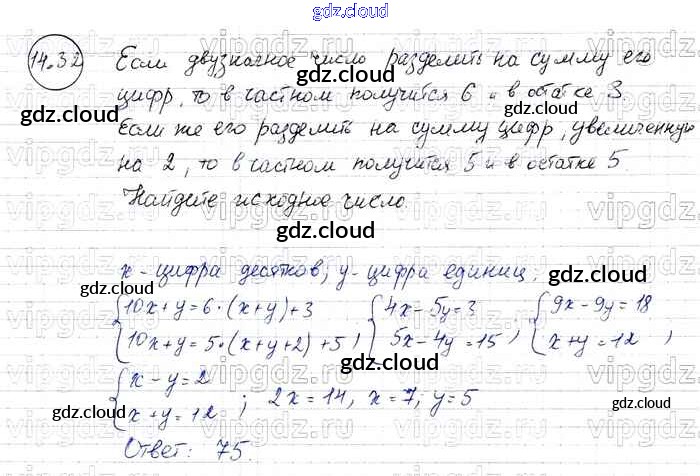 gdz.cloud
14.32 Если двузначное число разделить на сумму его
цифр, то в частном получится 6 и в остатке 3.
Если же его разделить на сумму цифр, увеличенную
на 2, то в частном получится 5 и в остатке 5.
Найдите исходное число.
x - цифра десятков, y - цифра единиц;
{10x+y=6·(x+y)+3 {4x-5y=3 {9x-9y=18
{10x+y=5·(x+y+2)+5 ; {5x-4y=15 ; {x+y=12 ;
{x-y=2
{x+y=12 ; 2x=14, x=7; y=5
Ответ: 75.
gdz.cloud
gdz.cloud
gdz.cloud
gdz.cloud
gdz.cloud
gdz.cloud
gdz.cloud
gdz.cloud
gdz.cloud
gdz.cloud
gdz.cloud
vipgdz.ru